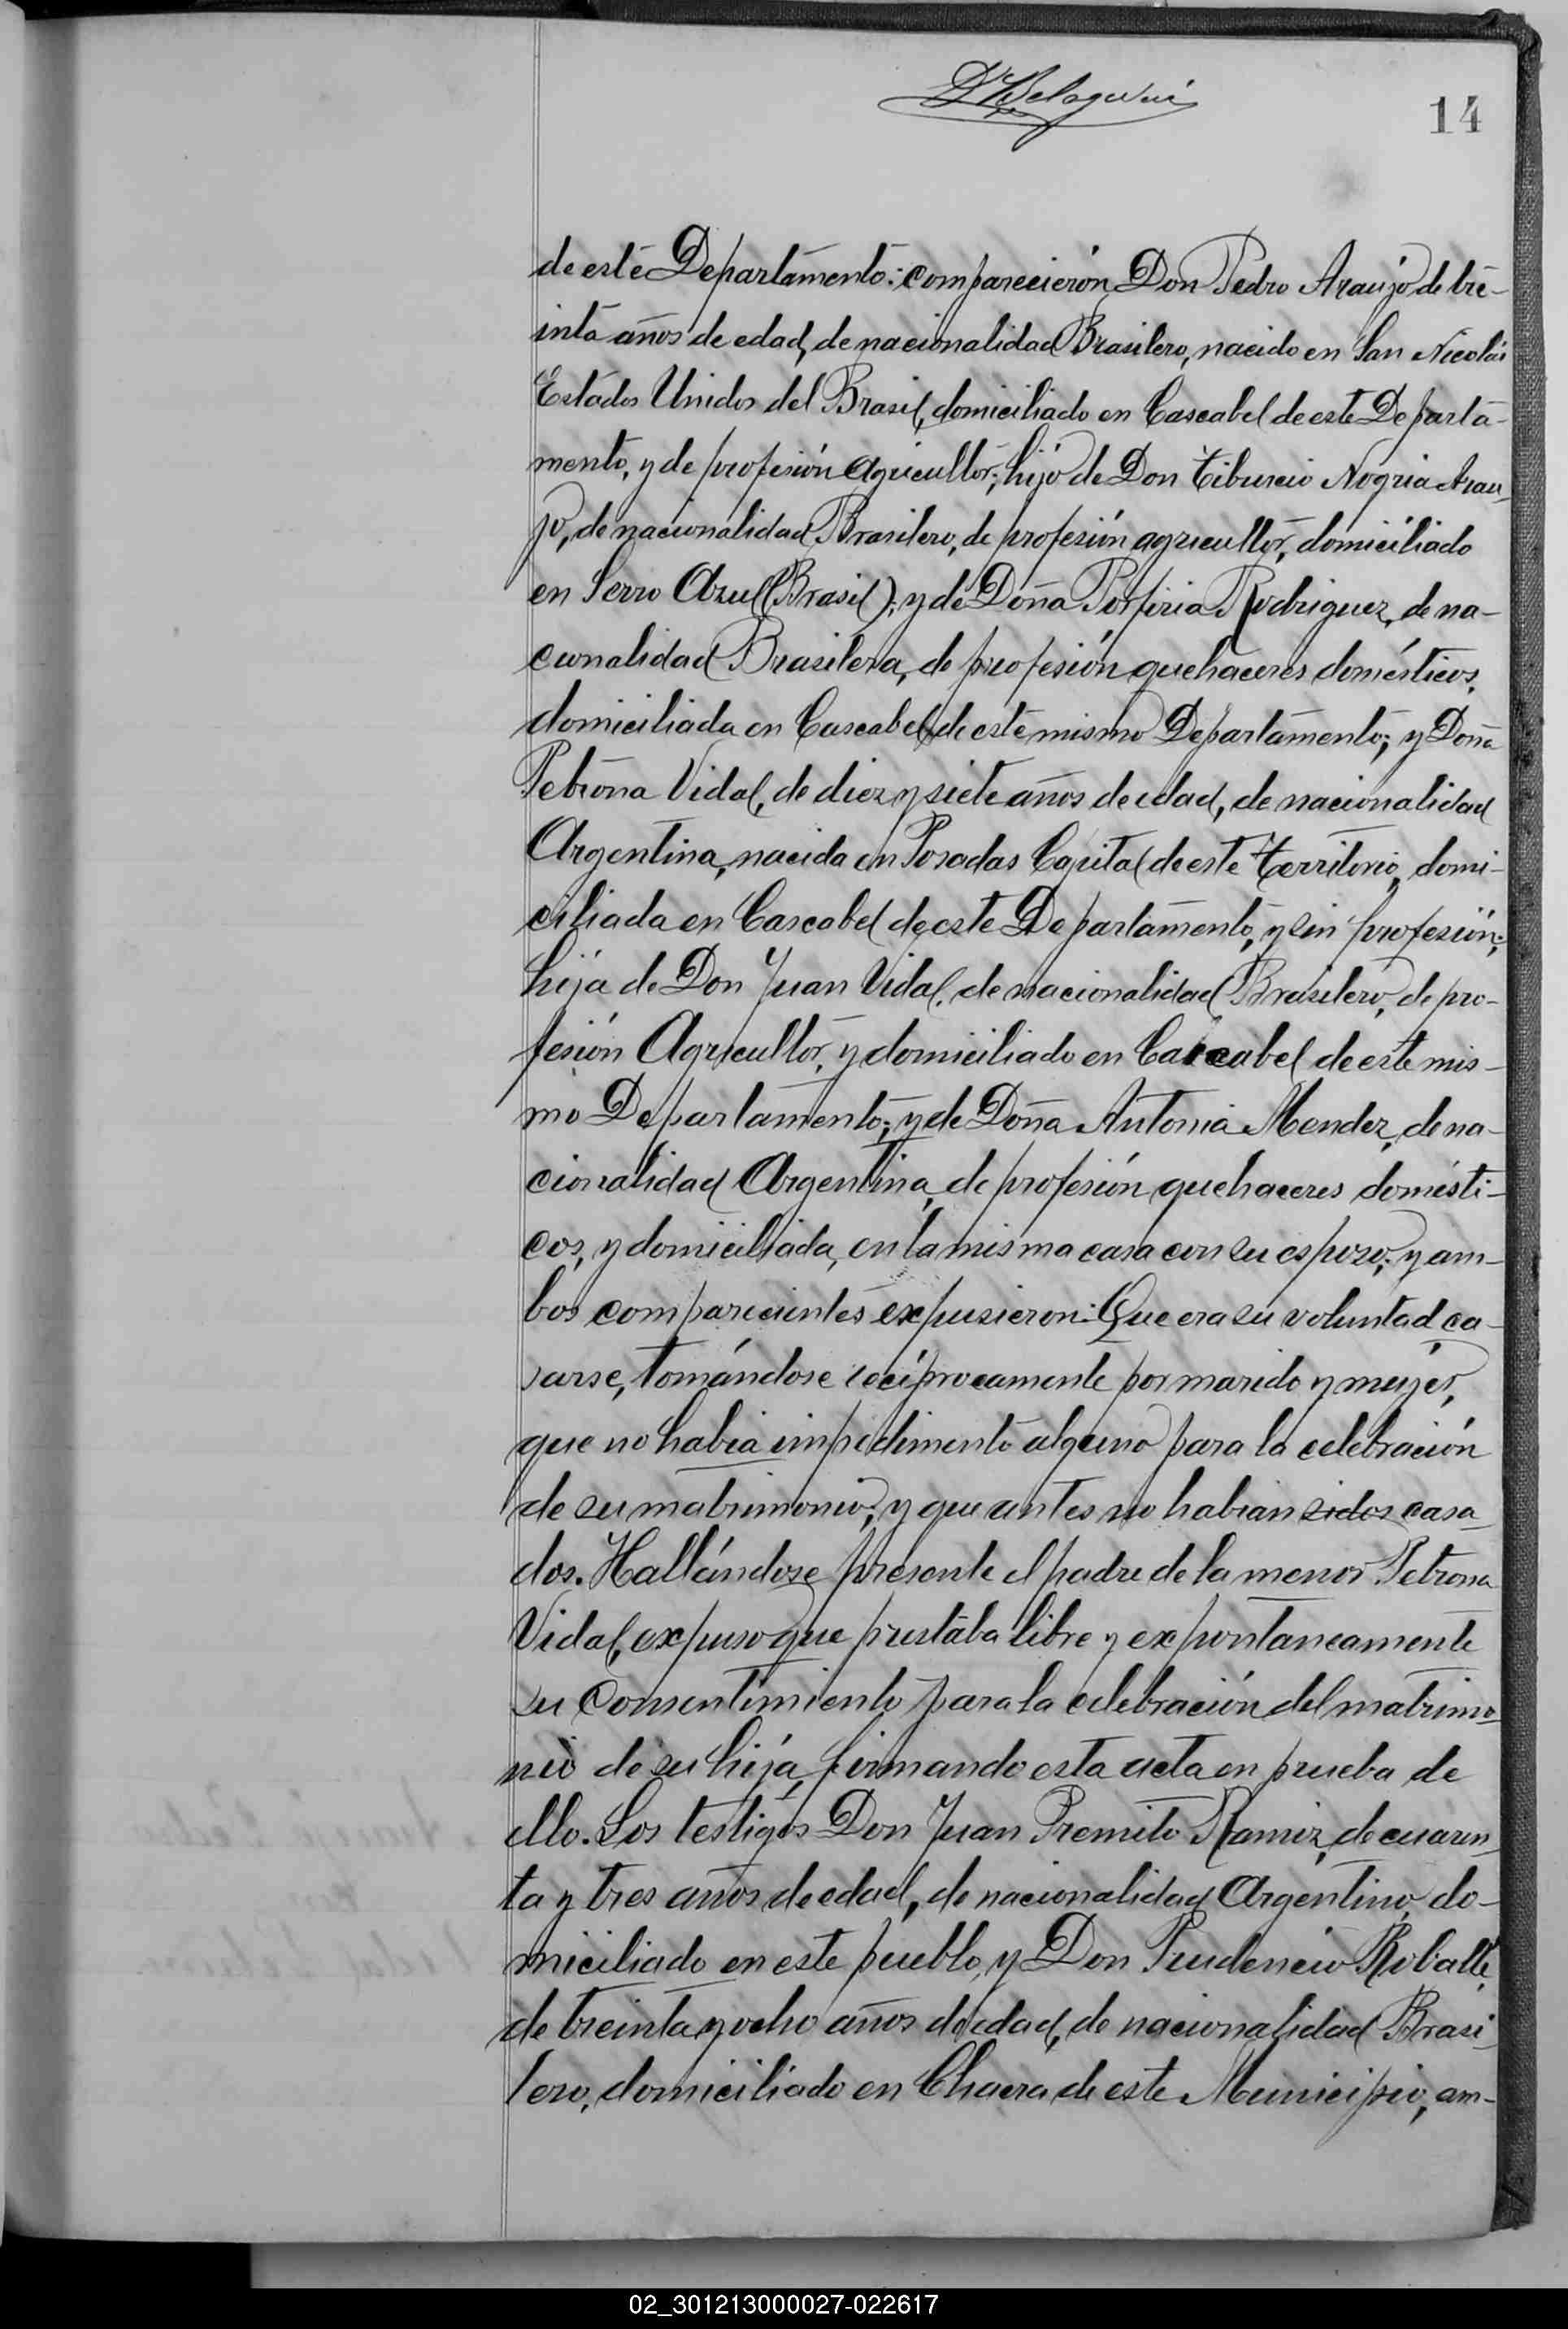 14
de este Departamento: comparecierón Don Pedro Araujo de tre-
inta años de edad, de nacionalidad Brasilero, nacido en San Nicolás
Estados Unidos del Brasil, domiciliado en Cascabel de este Departa-
mento, y de profesión agricultor; hijo de Don Tiburcio Nogria Arau-
jo, de nacionalidad Brasilero, de profesión agricultor, domiciliado
en Serro Azul (Brasil); y de Doña Porfiria Rodriguez, de na-
cionalidad Brasilera, de profesión quehaceres domésticos,
domiciliada en Cascabel de este mismo Departamento; y Doña
Petrona Vidal, de diez y siete años de edad, de nacionalidad
Argentina, nacida en Posadas Capital de este territorio, domi-
ciliada en Cascabel de este Departamento, y sin profesión;
hija de Don Juan Vidal, de nacionalidad Brasilero, de pro-
fesión Agricultor, y domiciliado en Cascabel de este mis-
mo Departamento; y de Doña Antonia Mendez, de na-
cionalidad Argentina, de profesión quehaceres domésti-
cos, y domiciliada, en la misma casa con su esposo; y am-
bos comparecientes expusieron: Que era su voluntad ca-
sarse, tomándose recíprocamente por marido y mujer,
que no habia impedimento alguno para la celebración
de su matrimonio; y que antes no habian sidos casa-
dos. Hallándose presente el padre de la menor Petrona
Vidal, expuso que prestaba libre y expontaneamente
su consentimiento para la celebración del matrimo-
nio de su hija, firmando esta acta en prueba de
ello. Los testigos Don Juan Premito Ramiz, de cuaren-
ta y tres años de edad, de nacionalidad Argentino, do-
miciliado en este pueblo, y Don Prudencio Roballe,
de treinta y ocho años de edad, de nacionalidad Brasi-
lero, domiciliado en Chacra de este Municipio, am-
02_301213000027-022617